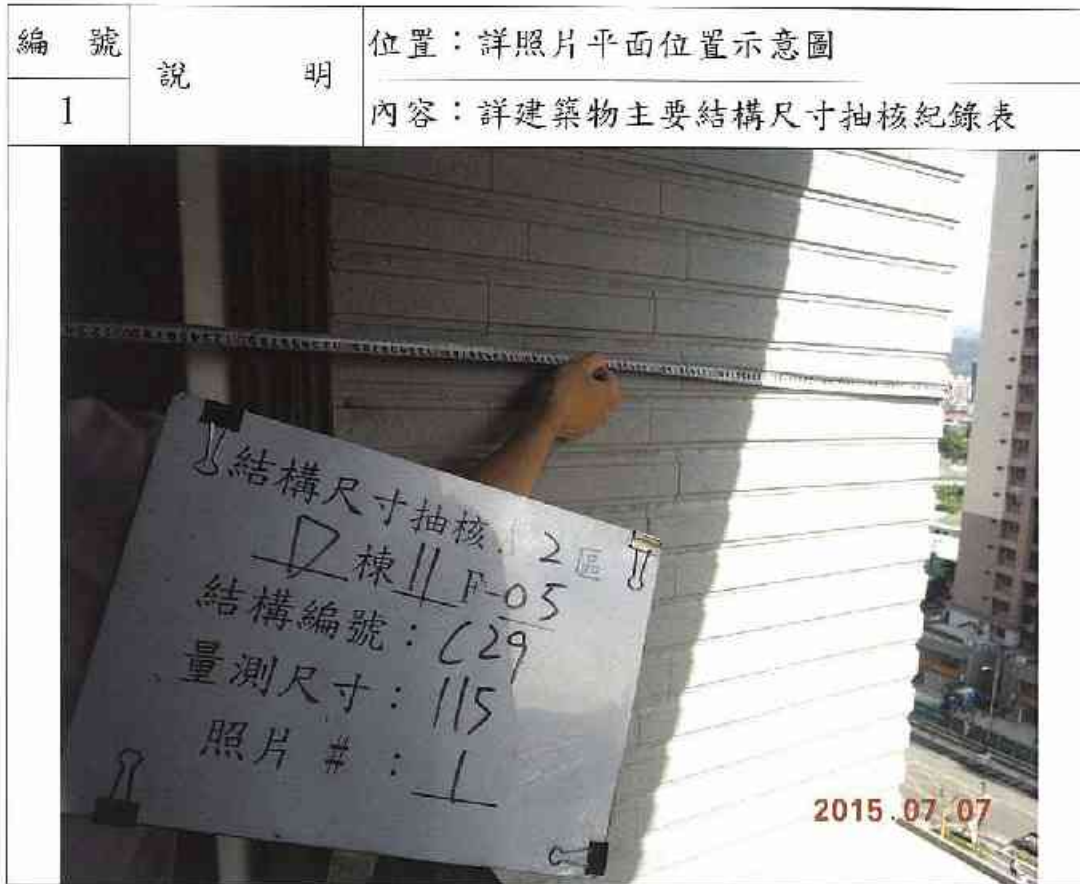 編 號
1
說 明
位置：詳照片平面位置示意圖
內容：詳建築物主要結構尺寸抽核紀錄表
結構尺寸抽核. 2區
D棟11F-05
結構編號：C29
量測尺寸：115
照片 #：1
2015.07.07